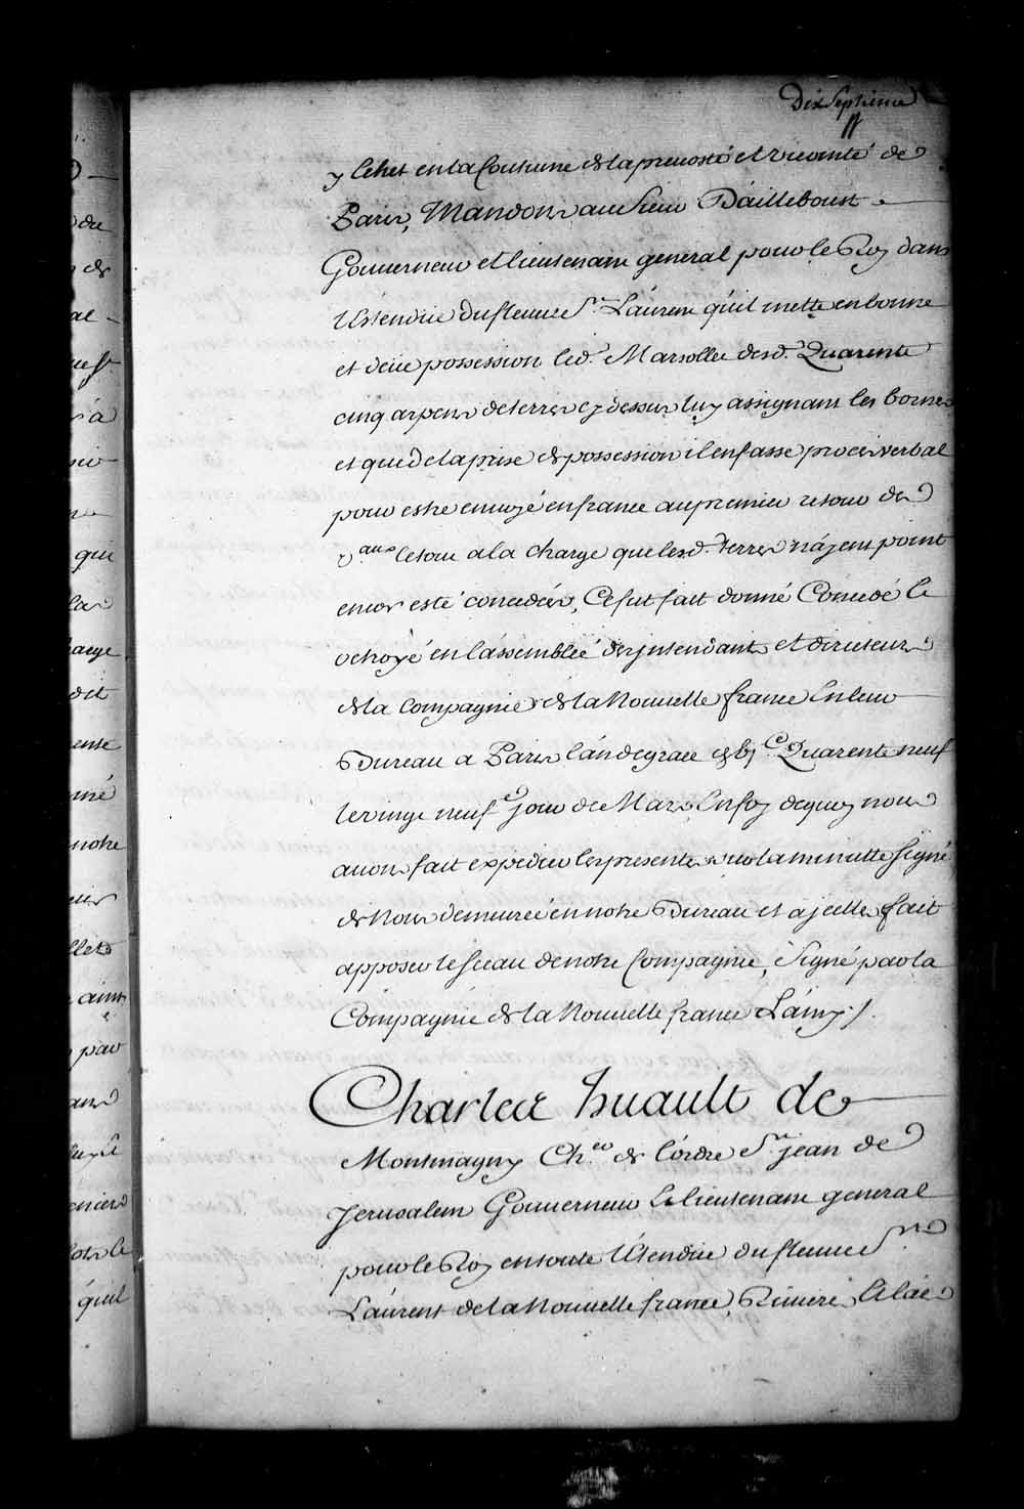 Dix Septieme
y echet en la Coutume de la prevosté et viconté de
Paris, Mandons au Sieur Dailleboust
Gouverneur et lieutenant general pour le Roy dans
l'Estendue du fleuve St. Laurent qu'il mette en bonne
et deue possession led. Marsollet desd. Quarente
cinq arpens de terres cy dessus luy assignant les bornes
et que de la prise de possession il en fasse procès verbal
pour estre envoyé en france au premier retour des
vaux le tout a la charge que lesd. terres n'ayent point
encor esté concedées, Ce fut fait donné Concedé le
octroyé en l'assemblée des jntendant et directeurs
de la Compagnie de la Nouvelle france En leur
Bureau a Paris l'an de grace
Quarente neuf
le vingt neufe jour de Mars, En foy de quoy nous
avons fait expedier les presentes sur la minutte signé
de Nous demeurée en notre Bureau et a jcelles fait
apposer le sceau de notre Compagnie, Signé par la
Compagnie de la Nouvelle france Lamy /.
Charles huault de
Montmagny Cher de l'ordre St jean de
Jerusalem Gouverneur Et lieutenant general
pour le Roy en toute l'Estendue du fleuve St.
Laurent de la Nouvelle france, Riviere, et lacs
du
de
qui
la
charge
dit
notre
par
qu'il